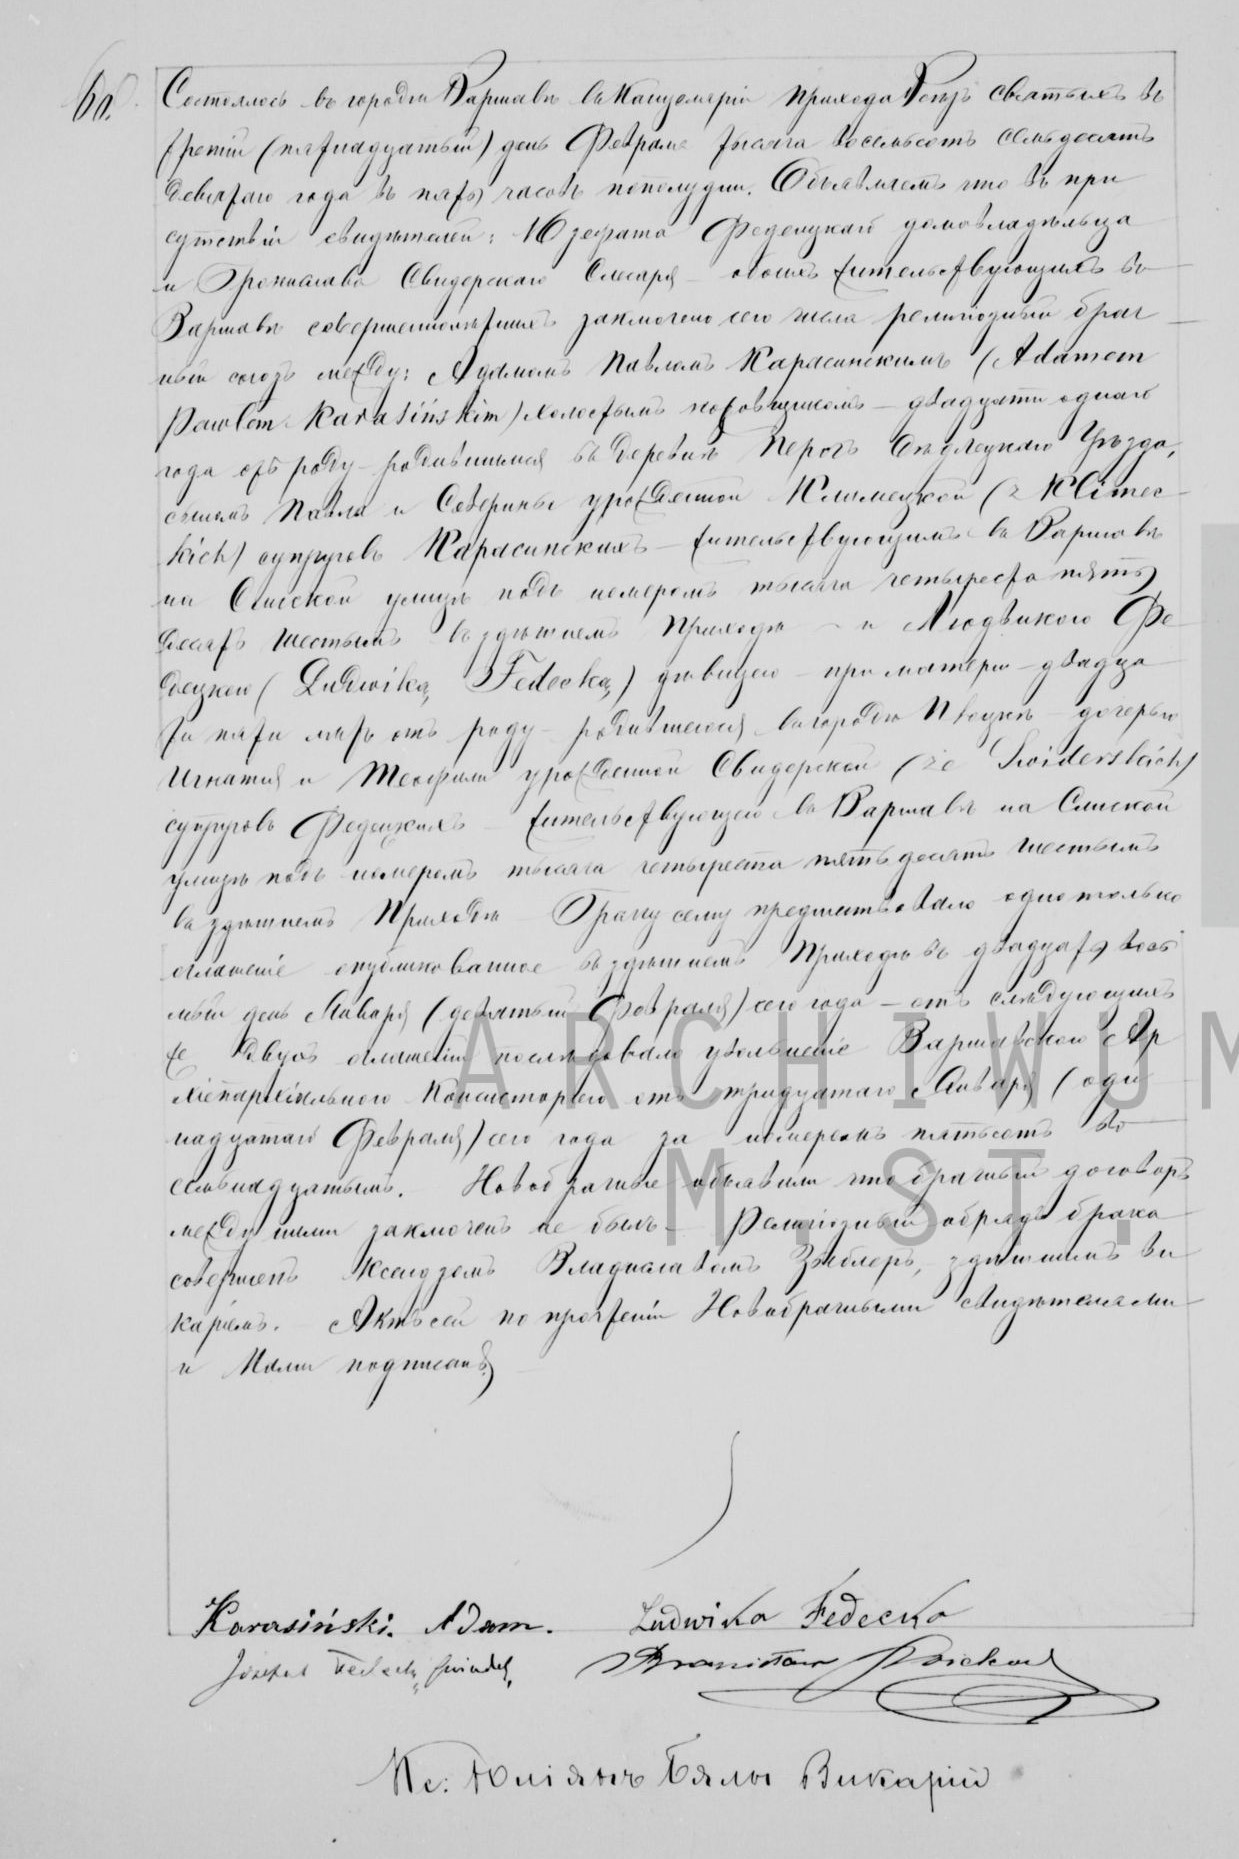 60.
Состоялось въ городѣ Варшавѣ въ Канцеляріи Прихода Всѣхъ Святыхъ въ
третій (пятнадцатый) день Февраля тысяча восемьсотъ семьдесятъ
девятаго года въ пять часовъ пополудни. Объявляемъ что въ при
сутствіи свидѣтелей: Юзефата Федецкаго домовладѣльца
и Бронислава Свидерскаго Слесаря – обоихъ жительствующихъ въ
Варшавѣ совершеннолѣтнихъ заключено сего числа религіозный брач
ный союзъ между: Адамомъ Павломъ Карасинскимъ (Adamem
Pawłem Karasińskim) холостымъ – двадцати одного
года отъ роду – родившимся въ деревнѣ Перогъ Сѣдлецкаго Уѣзда,
сыномъ Павла и Северины урожденной Климецкой (z Klimec
kich) супруговъ Карасинскихъ – жительствующимъ въ Варшавѣ
на Слиской улицѣ подъ номеромъ тысяча четыреста пять
десятъ шестымъ въ здѣшнемъ Приходѣ – и Людвикою Фе
децкою (Ludwiką Fedecką) дѣвицею – при матери – двадца
ти пяти лѣтъ отъ роду – родившеюся въ городѣ Плоцкѣ – дочерью
Игнатія и Теофили урожденной Свидерской (ze Swiderskich)
супруговъ Федецкихъ – жительствующею въ Варшавѣ на Слиской
улицѣ подъ номеромъ тысяча четыреста пятьдесятъ шестымъ
въ здѣшнемъ Приходѣ – Браку сему предшествовало одно только
оглашеніе опубликованное въ здѣшнемъ Приходѣ въ двадцать вось
мый день Января (девятый Февраля) сего года – отъ слѣдующихъ
же двухъ оглашеній послѣдовало увольненіе Варшавскою Ар
хіепархіальною Консисторіею отъ тридцатаго Января (оди
надцатаго Февраля) сего года за номеромъ пятьсотъ во
семьнадцатымъ. Новобрачные объявили что брачный договоръ
между ними заключенъ не былъ – Религіозный обрядъ брака
совершенъ Ксендзомъ Владиславомъ здѣшнимъ ви
каріемъ. Актъ сей по прочтеніи Новобрачными свидѣтелями
и Нами подписанъ
Karasiński. Adam. Ludwika Fedecka
Józefat Fedecki Bronisław
Кс: Юліянъ Бялы Викарій
ARCHIWUM
M. ST.